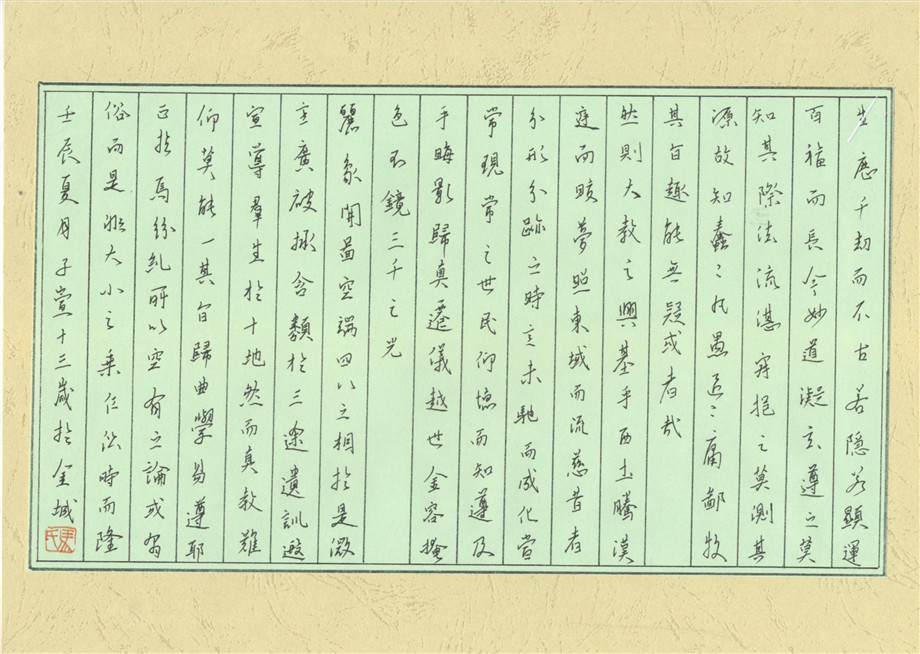 生歷千劫而不古若隱若顯運
百福而長今妙道凝玄遵之莫
知其際法流湛寂挹之莫測其
源故知蠢〻凡愚區〻庸鄙投
其旨趣能无疑或者哉
然則大教之興基乎西土騰漢
庭而皎夢照東域而流慈昔者
分形分跡之時言未馳而成化當
常現常之世民仰德而知遵及
乎晦影歸真遷儀越世金容掩
色不鏡三千之光
麗象開圖空端四八之相於是微
言廣被拯含類於三途遺訓遐
宣導羣生於十地然而真教難
仰莫能一其旨歸曲學易遵耶
正於焉紛糺所以空有之論或習
俗而是非大小之乘乍沿時而隆
壬辰夏月子萱十三歲於金城
馬氏